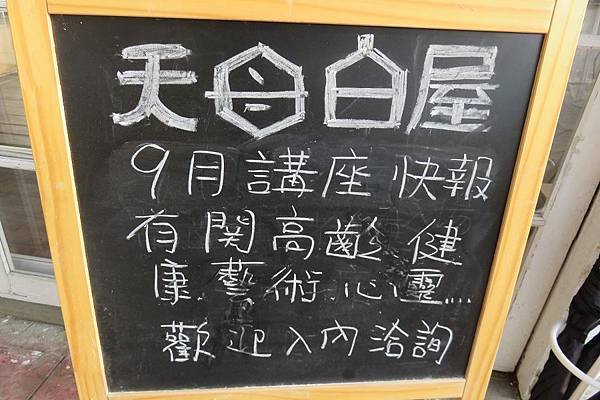 天母白屋
9月講座快報
有関高齡健
康藝術心靈....
歡迎入內洽詢